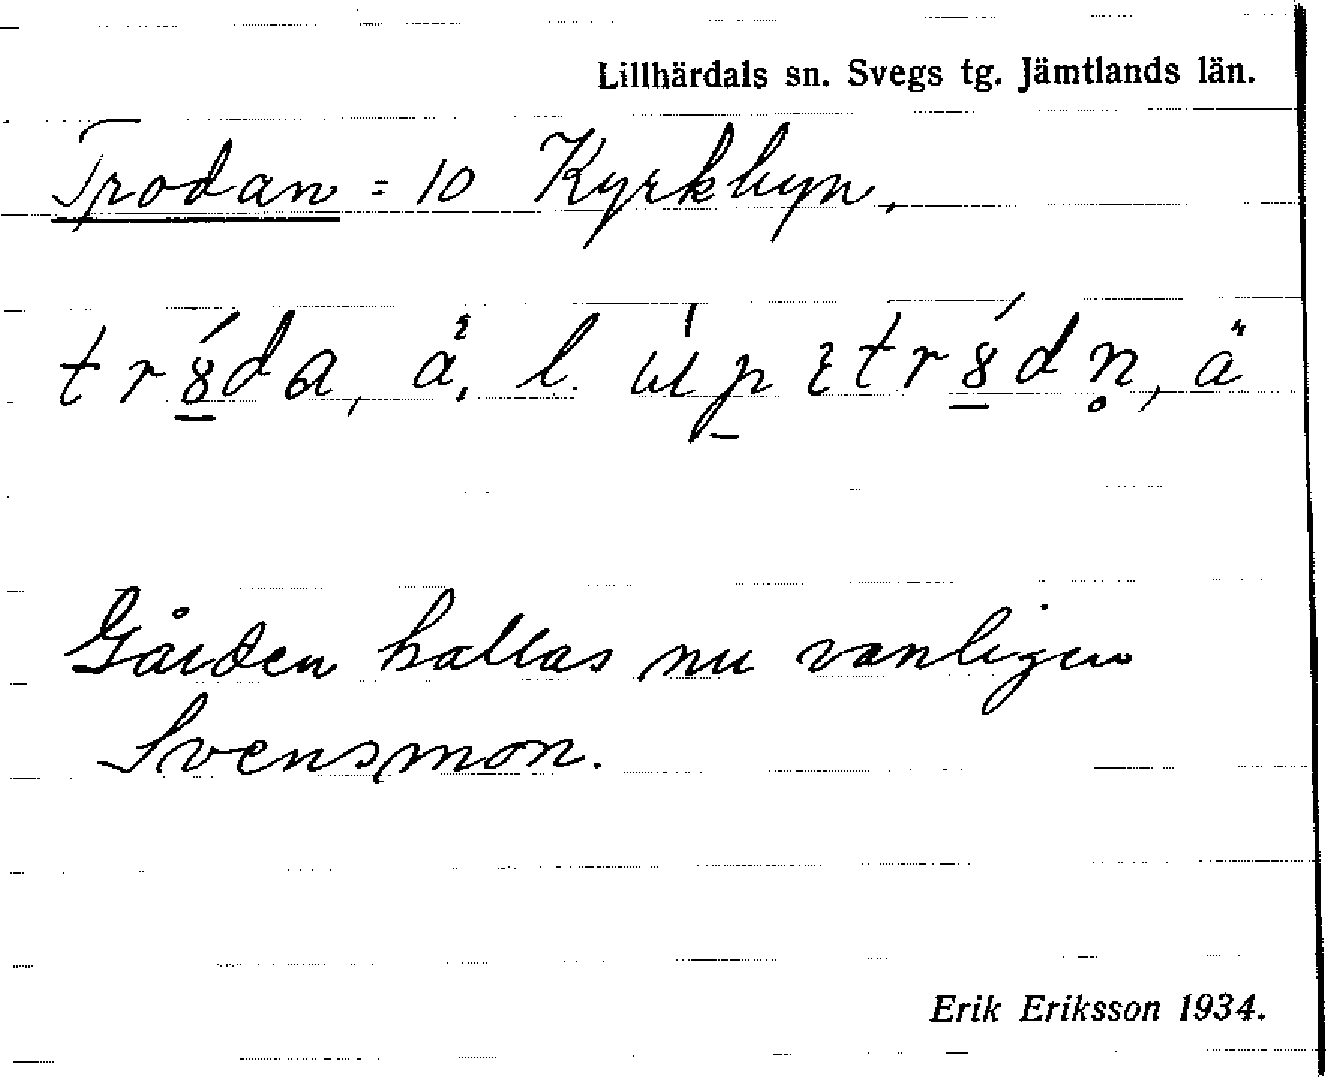 Lillhärdals sn. Svegs tg. Jämtlands län.
Trodan = 10 Kyrkbyn,
Gården kallas nu vanligen
Svensmon.
Erik Eriksson 1934.